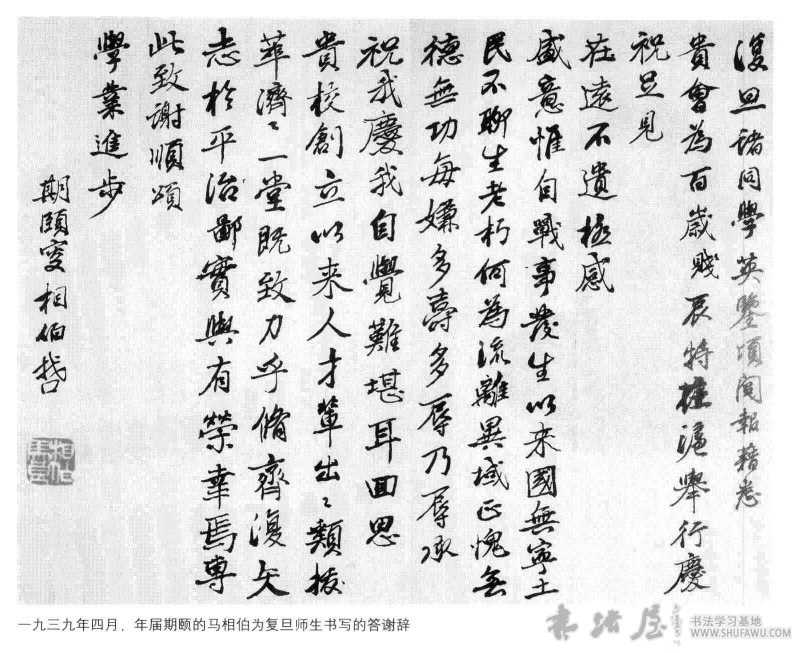 復旦諸同學英鑒頃閱報藉悉
貴會為百歲賤辰特在滬舉行慶
祝足見
在遠不遺極感
盛意惟自戰事發生以來國無寧土
民不聊生老朽何為流離異域正愧無
德無功每嫌多壽多辱乃辱承
祝我慶我自覺難堪耳回思
貴校創立以來人才輩出〻類拔
萃濟〻一堂既致力乎脩齊復矢
志於平治鄙實與有榮幸焉專
此致謝順頌
學業進步
期頤叟相伯
一九三九年四月，年届期颐的马相伯为复旦师生书写的答谢辞
书法屋
书法学习基地
WWW.SHUFAWU.COM